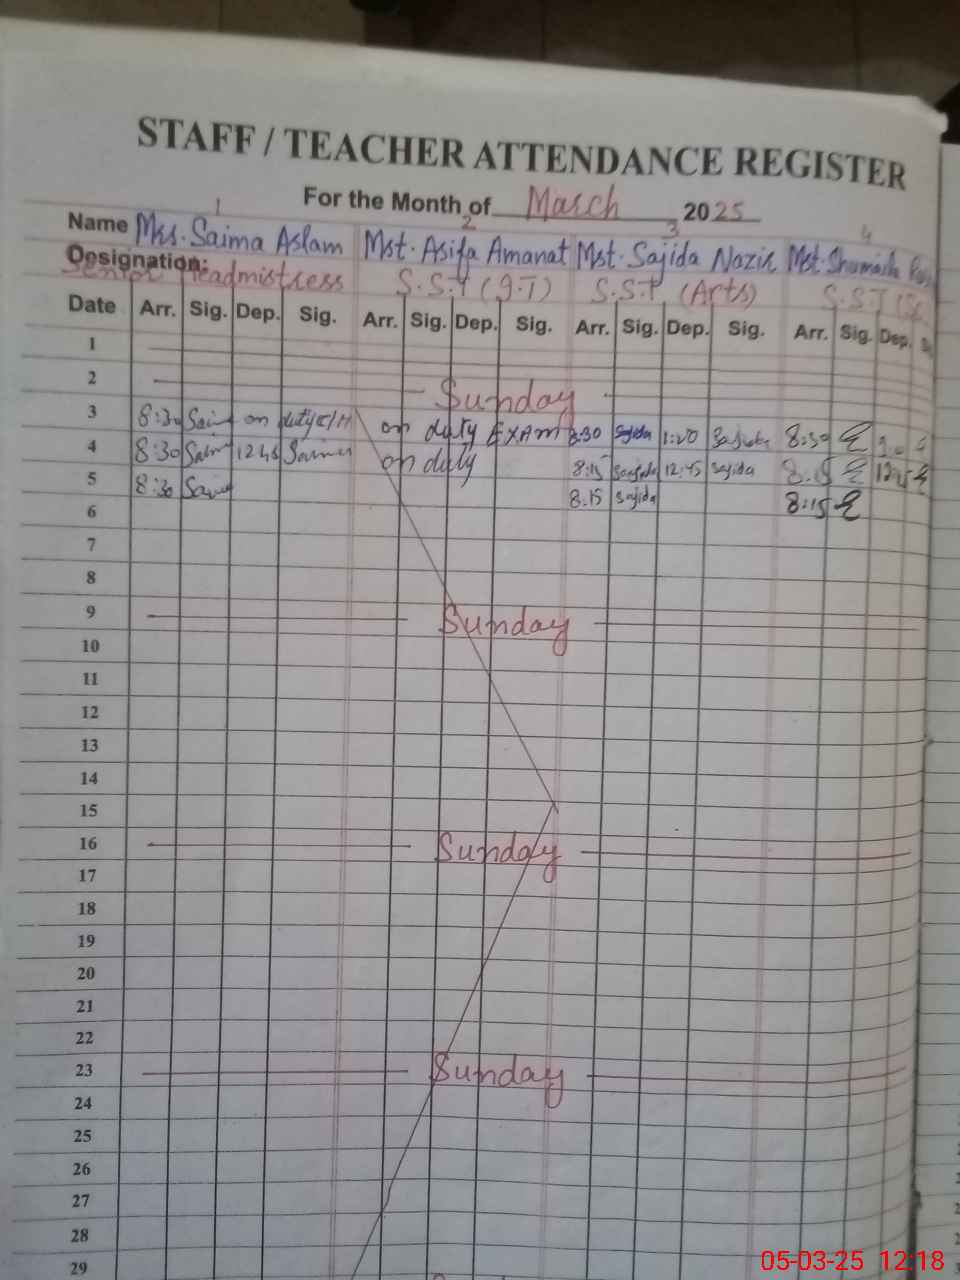 STAFF / TEACHER ATTENDANCE REGISTER
For the Month of March 2025
1 2 3 4
Name Mrs. Saima Aslam Mst. Asifa Amanat Mst. Sajida Nazir Mst. Shumaila
Designation: Senior Headmistress S.S.T (I.T) S.S.T (Arts) S.S.T (Sc
Date Arr. Sig. Dep. Sig. Arr. Sig. Dep. Sig. Arr. Sig. Dep. Sig. Arr. Sig. Dep. S
1
2 Sunday
3 8:30 Saima on duty on duty EXAM 8:30 Sajida 1:20 Sajida 8:30
4 8:30 Saima 12:45 Saima on duty 8:15 Sajida 12:45 Sajida 8:15 12:45
5 8:30 Saima 8.15 Sajida 8:15
6
7
8
9 Sunday
10
11
12
13
14
15
16 Sunday
17
18
19
20
21
22
23 Sunday
24
25
26
27
28
29
05-03-25 12:18